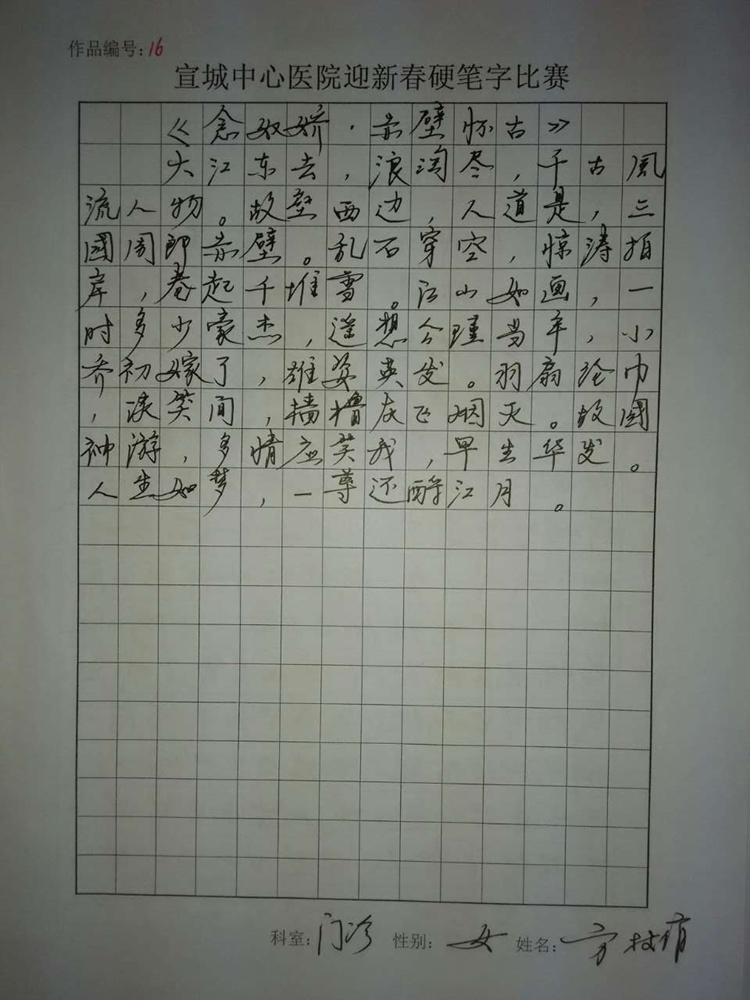 作品编号:16
宣城中心医院迎新春硬笔字比赛
《念奴娇·赤壁怀古》
大江东去，浪淘尽，千古風
流人物。故垒西边，人道是，三
國周郎赤壁。乱石穿空，惊涛拍
岸，卷起千堆雪。江山如画，一
时多少豪杰，遥想公瑾当年，小
乔初嫁了，雄姿英发。羽扇纶巾
，谈笑间，樯橹灰飞烟灭。故國
神游，多情应笑我，早生华发。
人生如梦，一尊还酹江月。
科室:门诊 性别:女 姓名:方